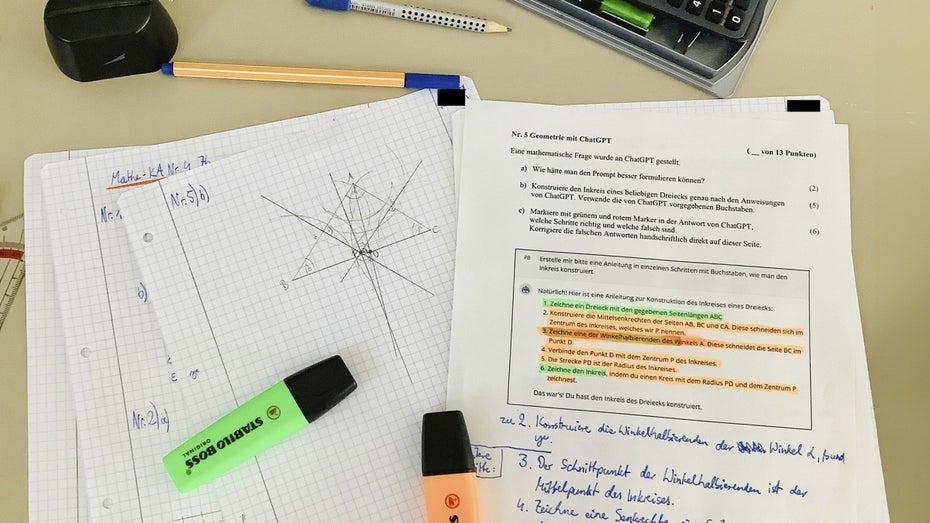 Mathe-KA Nr. 4
Nr. 5)b)
Nr. 1
b)
Nr. 2)a)
A
B
C
STABILO BOSS
ORIGINAL
Nr. 5 Geometrie mit ChatGPT
( __ von 13 Punkten)
Eine mathematische Frage wurde an ChatGPT gestellt.
a) Wie hätte man den Prompt besser formulieren können? (2)
b) Konstruiere den Inkreis eines beliebigen Dreiecks genau nach den Anweisungen
von ChatGPT. Verwende die von ChatGPT vorgegebenen Buchstaben. (5)
c) Markiere mit grünem und rotem Marker in der Antwort von ChatGPT,
welche Schritte richtig und welche falsch sind.
Korrigiere die falschen Antworten handschriftlich direkt auf dieser Seite. (6)
PB Erstelle mir bitte eine Anleitung in einzelnen Schritten mit Buchstaben, wie man den
Inkreis konstruiert.
Natürlich! Hier ist eine Anleitung zur Konstruktion des Inkreises eines Dreiecks:
1. Zeichne ein Dreieck mit den gegebenen Seitenlängen ABC.
2. Konstruiere die Mittelsenkrechten der Seiten AB, BC und CA. Diese schneiden sich im
Zentrum des Inkreises, welches wir P nennen.
3. Zeichne eine der Winkelhalbierenden des Winkels A. Diese schneidet die Seite BC im
Punkt D.
4. Verbinde den Punkt D mit dem Zentrum P des Inkreises.
5. Die Strecke PD ist der Radius des Inkreises.
6. Zeichne den Inkreis, indem du einen Kreis mit dem Radius PD und dem Zentrum P
zeichnest.
Das war's! Du hast den Inkreis des Dreiecks konstruiert.
zu 2. Konstruiere die Winkelhalbierenden der Winkel α, β und
γ.
3. Der Schnittpunkt der Winkelhalbierenden ist der
Mittelpunkt des Inkreises.
4. Zeichne eine Senkrechte